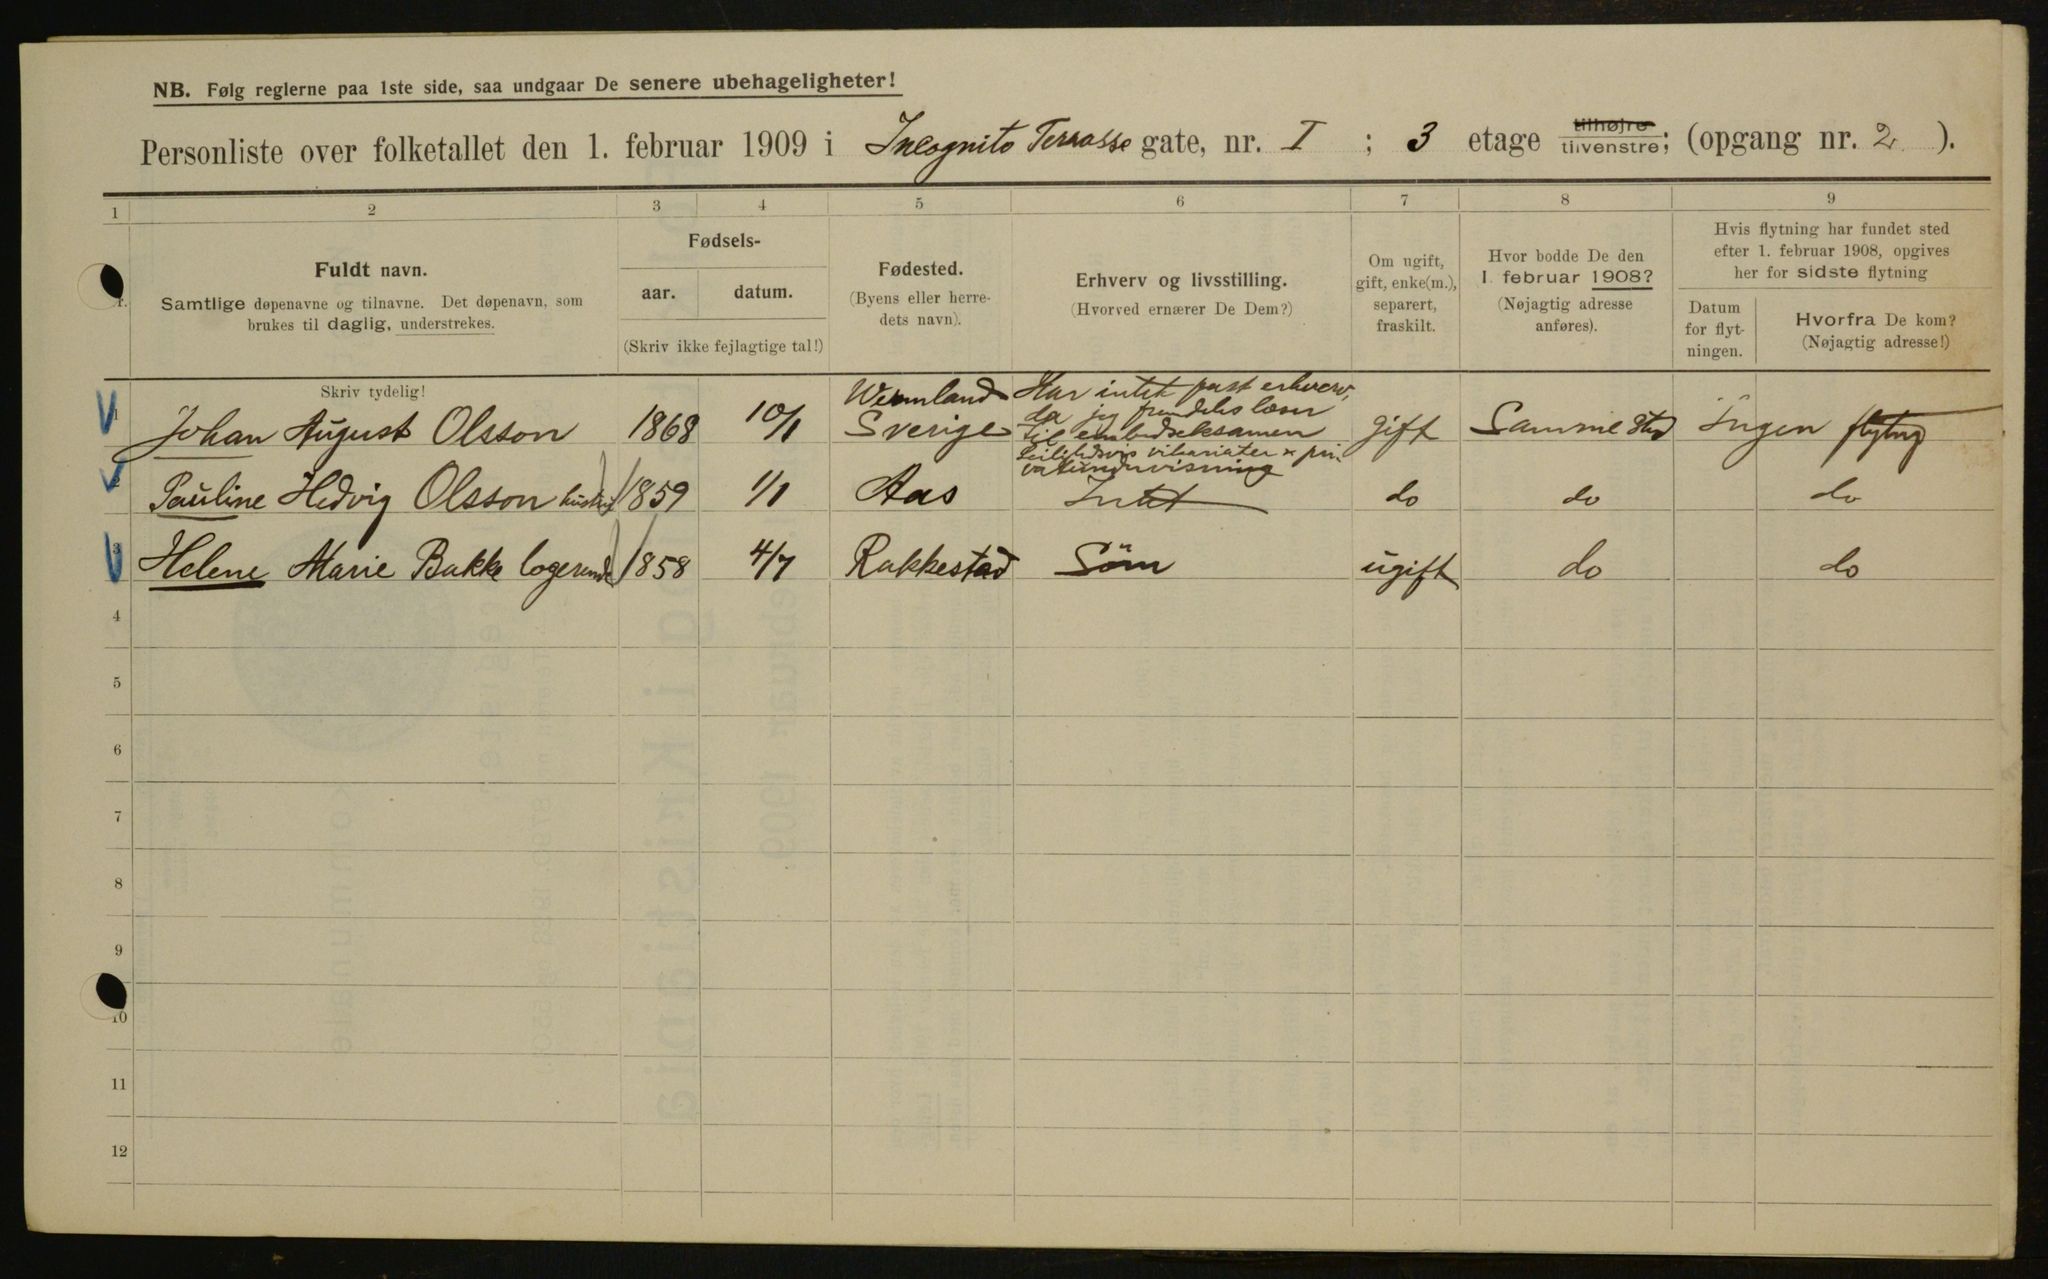 NB. Følg reglerne paa 1ste side, saa undgaar De senere ubehageligheter!
Personliste over folketallet den 1. februar 1909 i Incognito Terrasse gate, nr. I ; 3 etage tilhøjre tilvenstre; (opgang nr. 2 ).
1 2 3 4 5 6 7 8 9
Fuldt navn.
Samtlige døpenavne og tilnavne. Det døpenavn, som
brukes til daglig, understrekes.
Fødsels-
aar. datum.
(Skriv ikke fejlagtige tal!)
Fødested.
(Byens eller herre-
dets navn).
Erhverv og livsstilling.
(Hvorved ernærer De Dem?)
Om ugift,
gift, enke(m.),
separert,
fraskilt.
Hvor bodde De den
1. februar 1908?
(Nøjagtig adresse
anføres).
Hvis flytning har fundet sted
efter 1. februar 1908, opgives
her for sidste flytning
Datum
for flyt-
ningen.
Hvorfra De kom?
(Nøjagtig adresse!)
Skriv tydelig!
1 Johan August Olsson 1868 10/1 Wermland Sverige
Har intet fast erhverv,
da jeg fremdeles læser
til embedseksamen
leilighedsvis vikariater & pri-
vatundervisning
gift Samme sted Ingen flytng
2 Pauline Hedvig Olsson hustru 1859 1/1 Aas Intet do do do
3 Helene Marie Bakke logerende 1858 4/7 Rakkestad Søm ugift do do
4
5
6
7
8
9
10
11
12